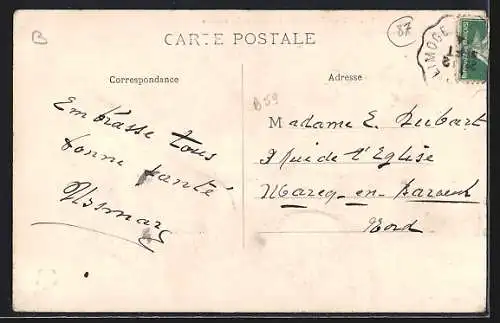 B
87
LIMOGE
CARTE POSTALE
Correspondance
Adresse
B59
Embrasse tous
bonne santé
Madame E.
3 Rue de l'Eglise
Marcq-en-Baroeul
Nord